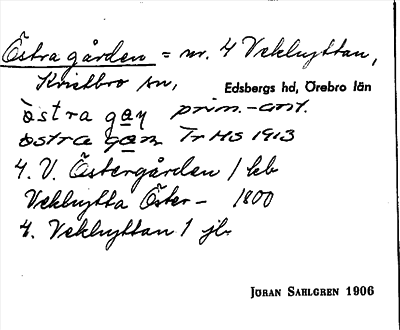 Östra gården = nr. 4 Vekhyttan,
Knistbro sn, Edsbergs hd, Örebro län
östra gaṇ prim.-ant.
östra gaṇ Tr HS 1913
4. V. Östergården / kb
Vekhytta Öster- 1800
4. Vekhyttan 1 jb
JÖRAN SAHLGREN 1906